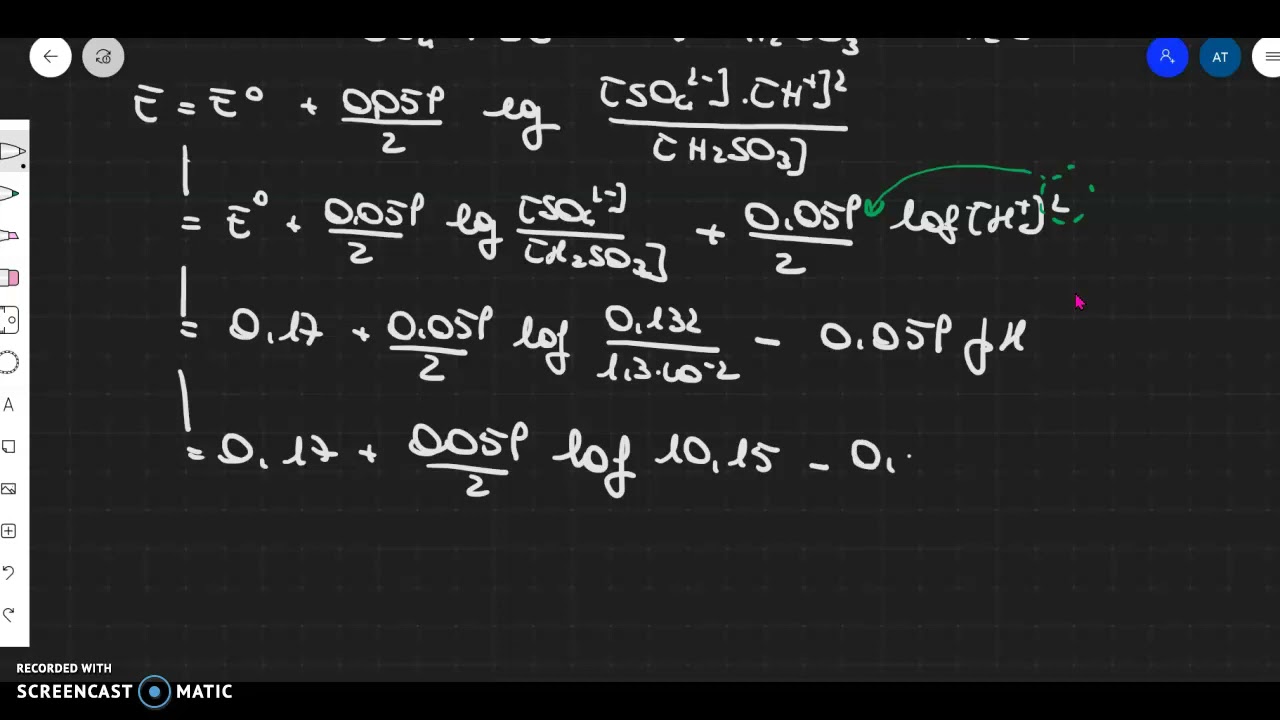 AT
E = E⁰ + 0,059/2 log [SO₄²⁻].[H⁺]²/[H₂SO₃]
= E⁰ + 0.059/2 log [SO₄²⁻]/[H₂SO₃] + 0.059/2 log[H⁺]²
= 0.17 + 0.059/2 log 0.132/1.3·10⁻² - 0.059 pH
= 0.17 + 0.059/2 log 10.15 - 0.
A
RECORDED WITH
SCREENCAST MATIC